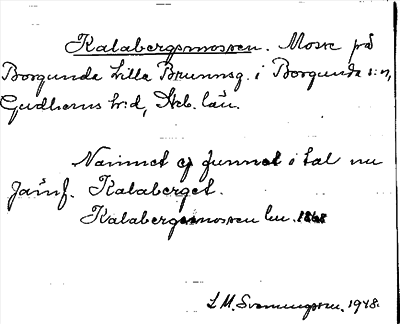 Kalabergsmossen. Mosse på
Borgunda Lilla Brunnsg. i Borgunda s:n,
Gudhems h:d, Skb. län.
Namnet ej funnet i tal nu
Jämf. Kalaberget.
Kalabergsmossen lm. 1868
L M. Svenungsson. 1948.